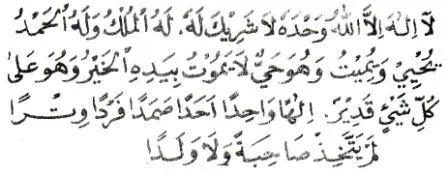 لَآ اِلٰهَ اِلَّا اللّٰهُ وَحْدَهُ لَا شَرِيْكَ لَهُ. لَهُ الْمُلْكُ وَلَهُ الْحَمْدُ
يُحْيِيْ وَيُمِيْتُ وَهُوَ حَيٌّ لَا يَمُوْتُ بِيَدِهِ الْخَيْرُ وَهُوَ عَلٰى
كُلِّ شَيْئٍ قَدِيْرٌ. اِلٰهًا وَاحِدًا اَحَدًا صَمَدًا فَرْدًا وِتْرًا
لَمْ يَتَّخِذْ صَاحِبَةً وَلَا وَلَدًا